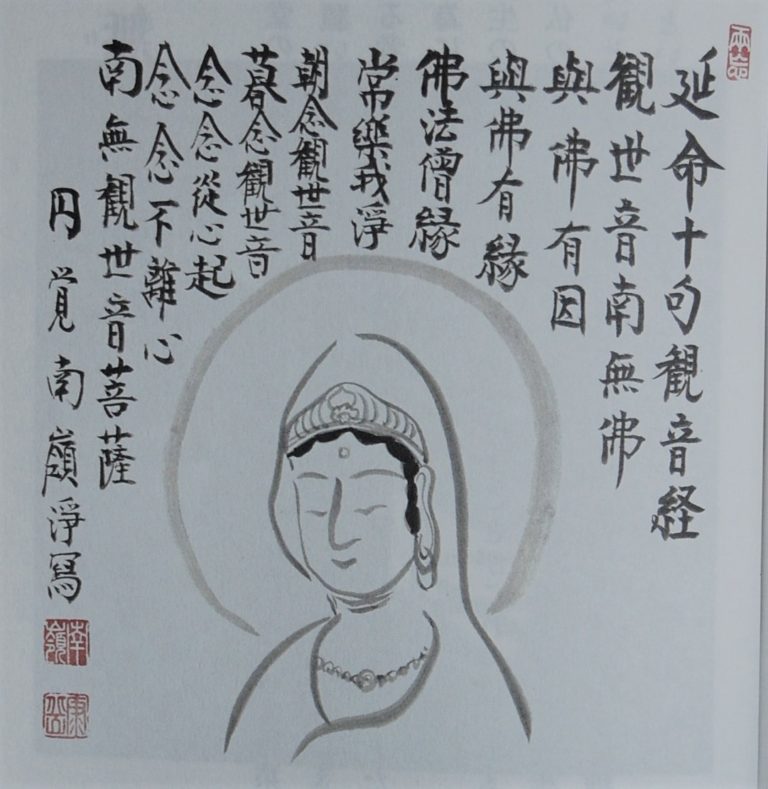 延命十句観音経
観世音南無佛
與佛有因
與佛有縁
佛法僧縁
常樂我淨
朝念観世音
暮念観世音
念念從心起
念念不離心
南無観世音菩薩
円覚南嶺淨寫
南嶺